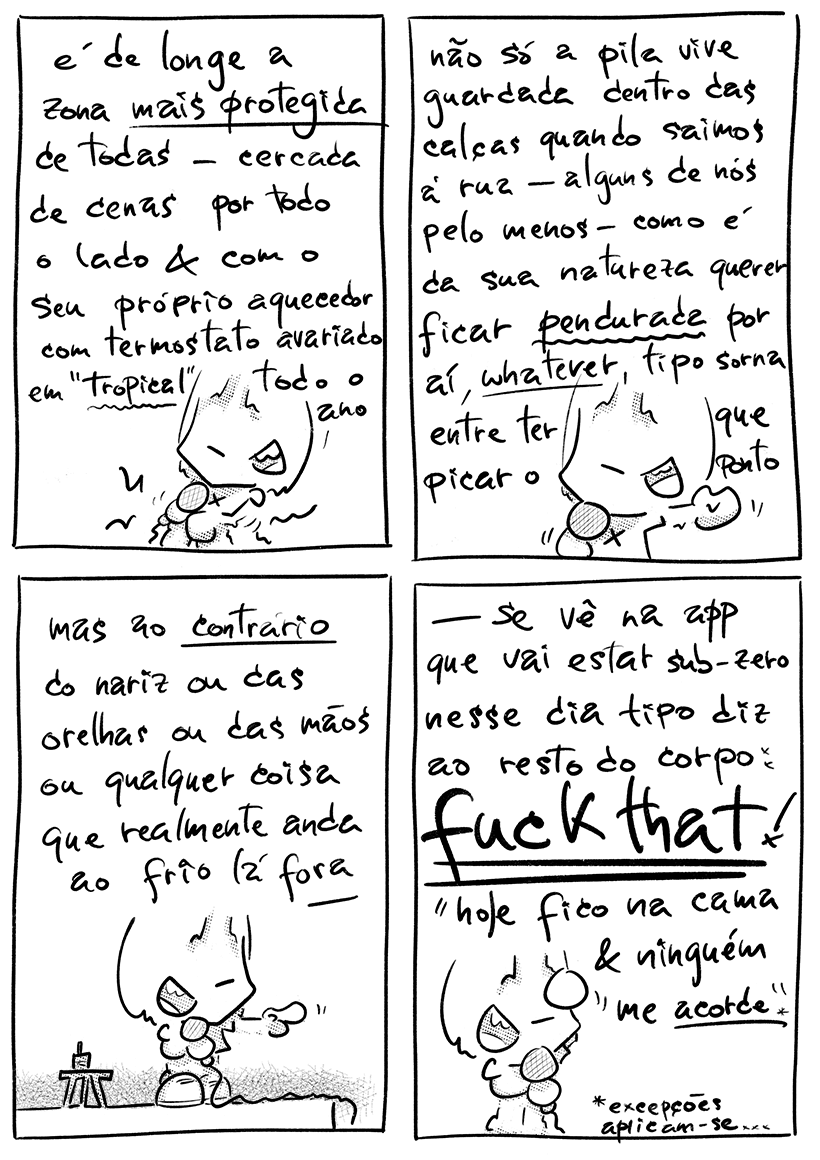 é de longe a
zona mais protegida
de todas — cercada
de cenas por todo
o lado & com o
seu próprio aquecedor
com termostato avariado
em "tropical" todo o
ano
não só a pila vive
guardada dentro das
calças quando saimos
á rua — alguns de nós
pelo menos — como é
da sua natureza querer
ficar pendurada por
aí, whatever, tipo sorna
entre ter que
picar o ponto
mas ao contrário
do nariz ou das
orelhas ou das mãos
ou qualquer coisa
que realmente anda
ao frio lá fora
— se vê na app
que vai estar sub-zero
nesse dia tipo diz
ao resto do corpo:
fuck that!
"hoje fico na cama
& ninguém
me acorde"*
*excepções
aplicam-se...